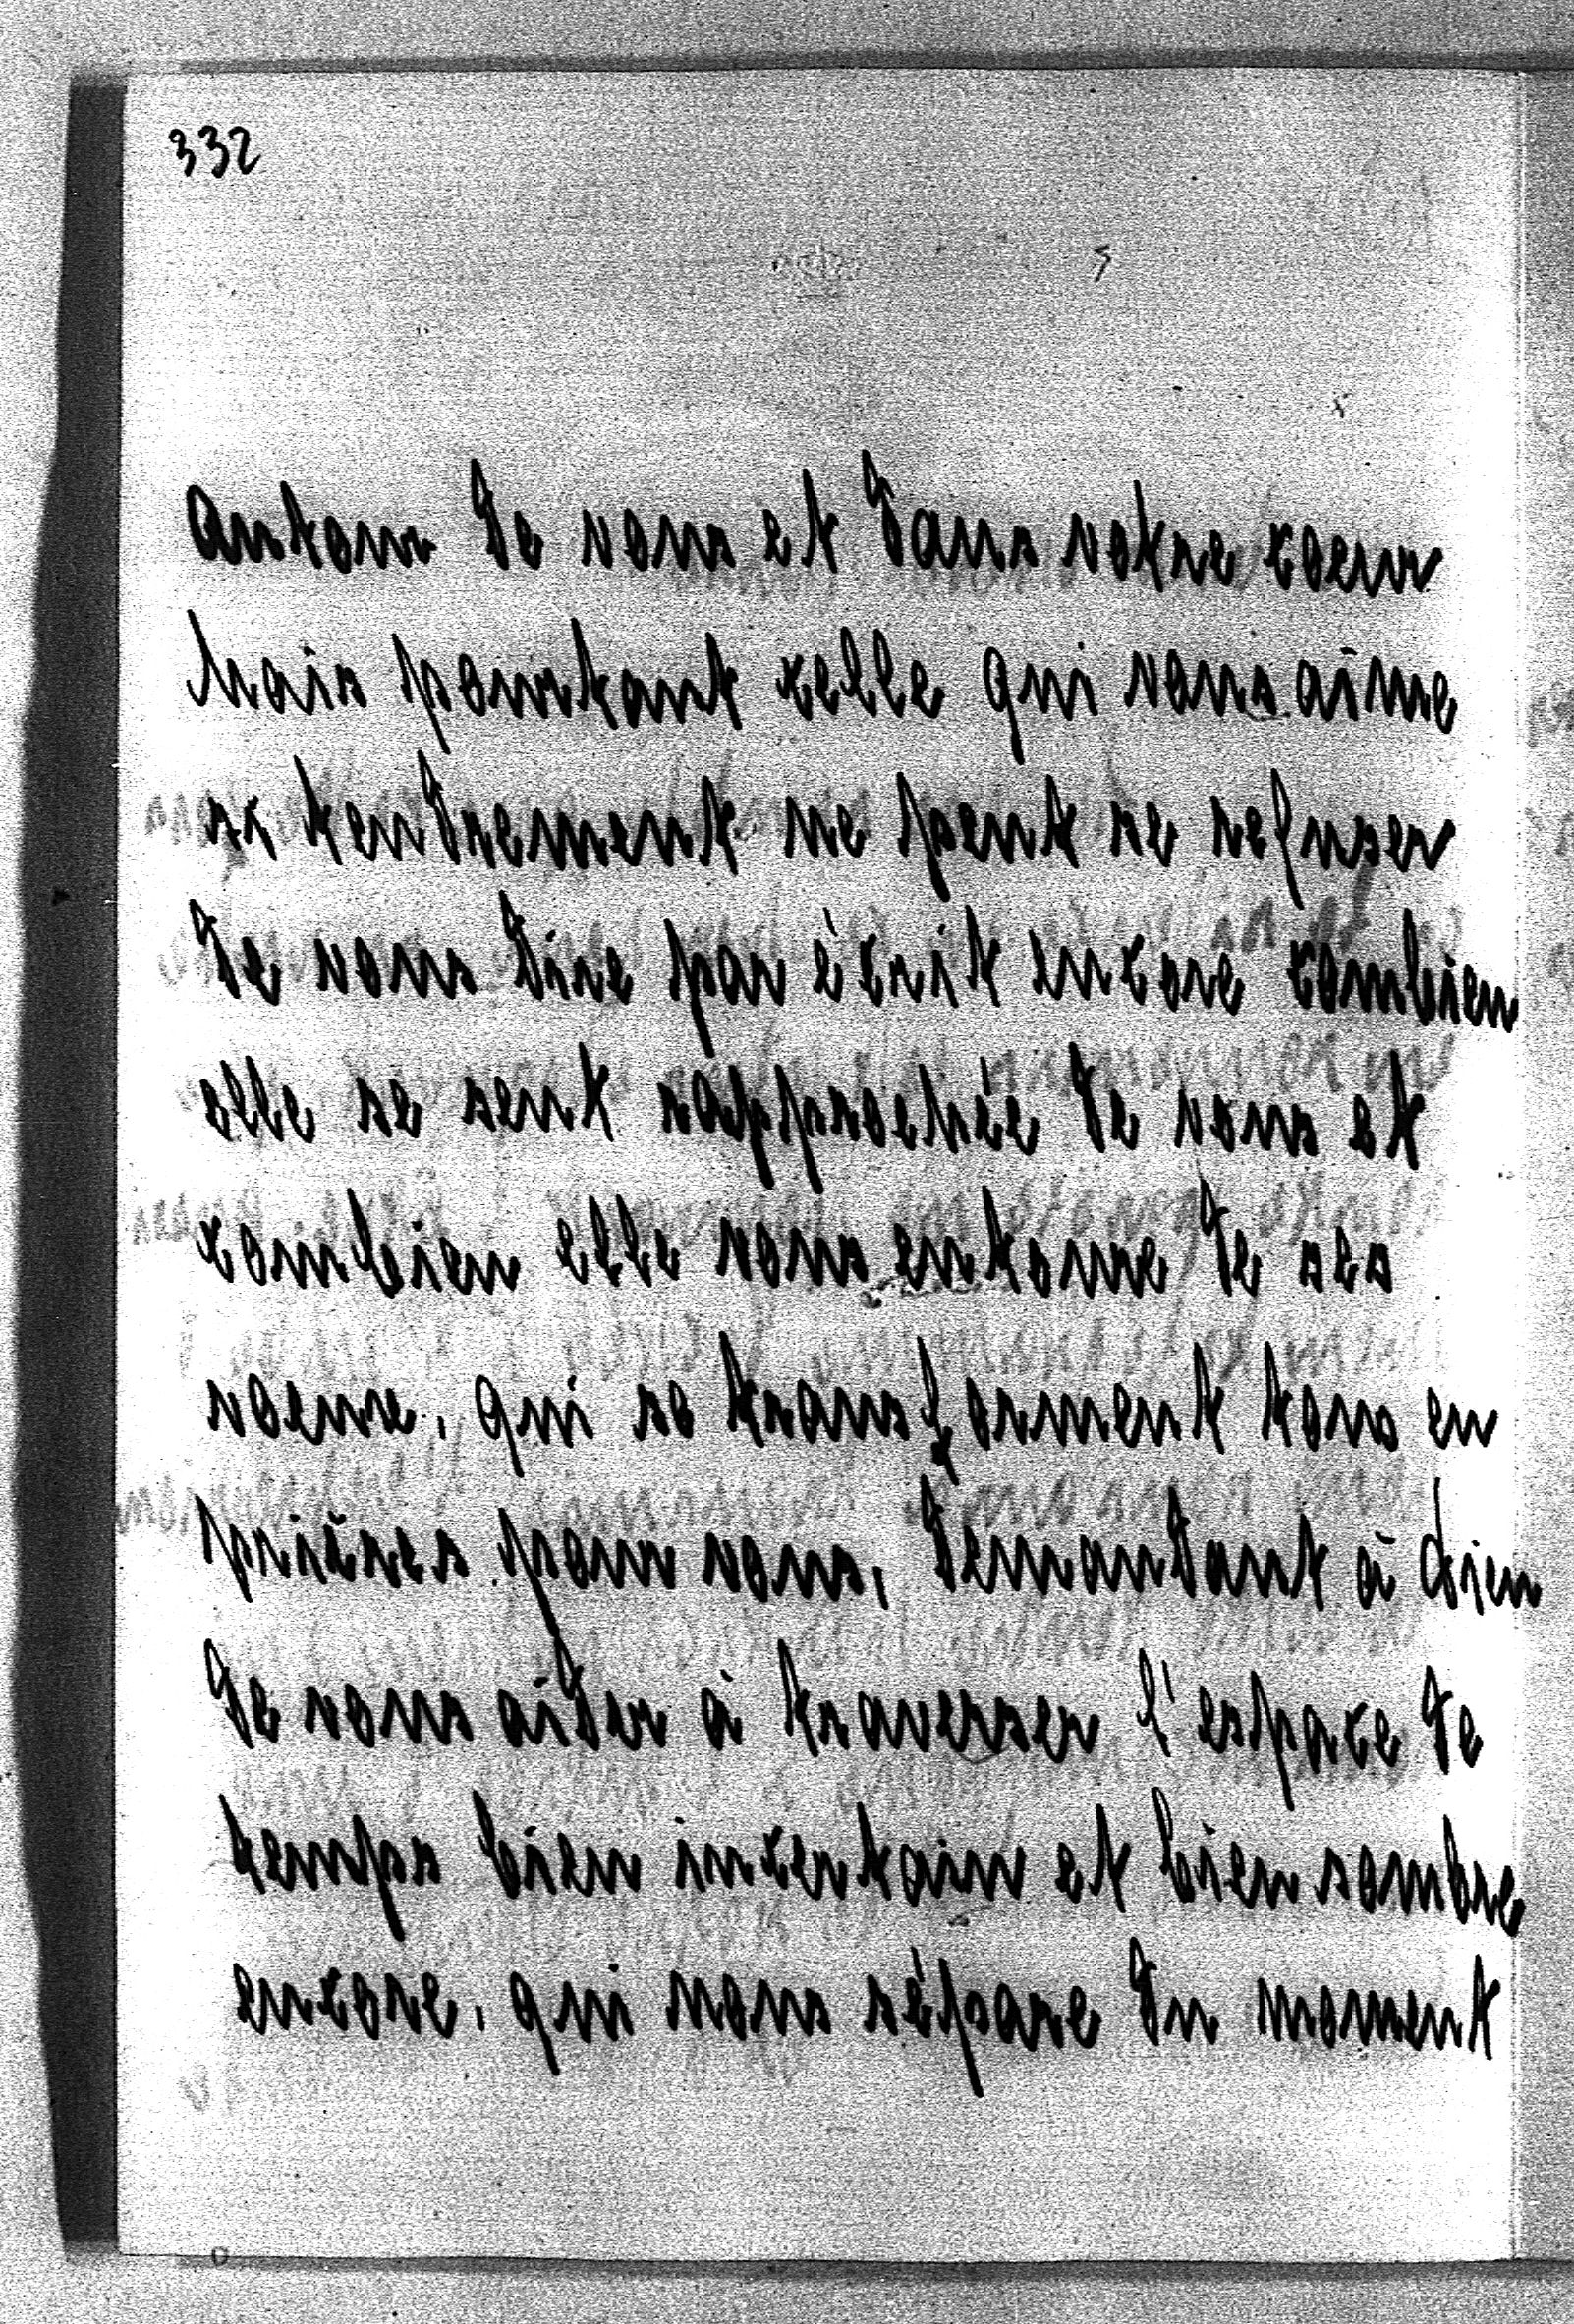 332
autour de vous et dans votre coeur
Mais pourtant celle qui vous aime
si tendrement ne peut se refuser
de vous dire par écrit encore combien
elle se sent rapprochée de vous et
combien elle vous entoure de ses
voeux, qui se transforment tous en
prières pour vous, demandant à Dieu
de vous aider à traverser l'espace de
temps bien incertain et bien sombre
encore, qui nous sépare du moment